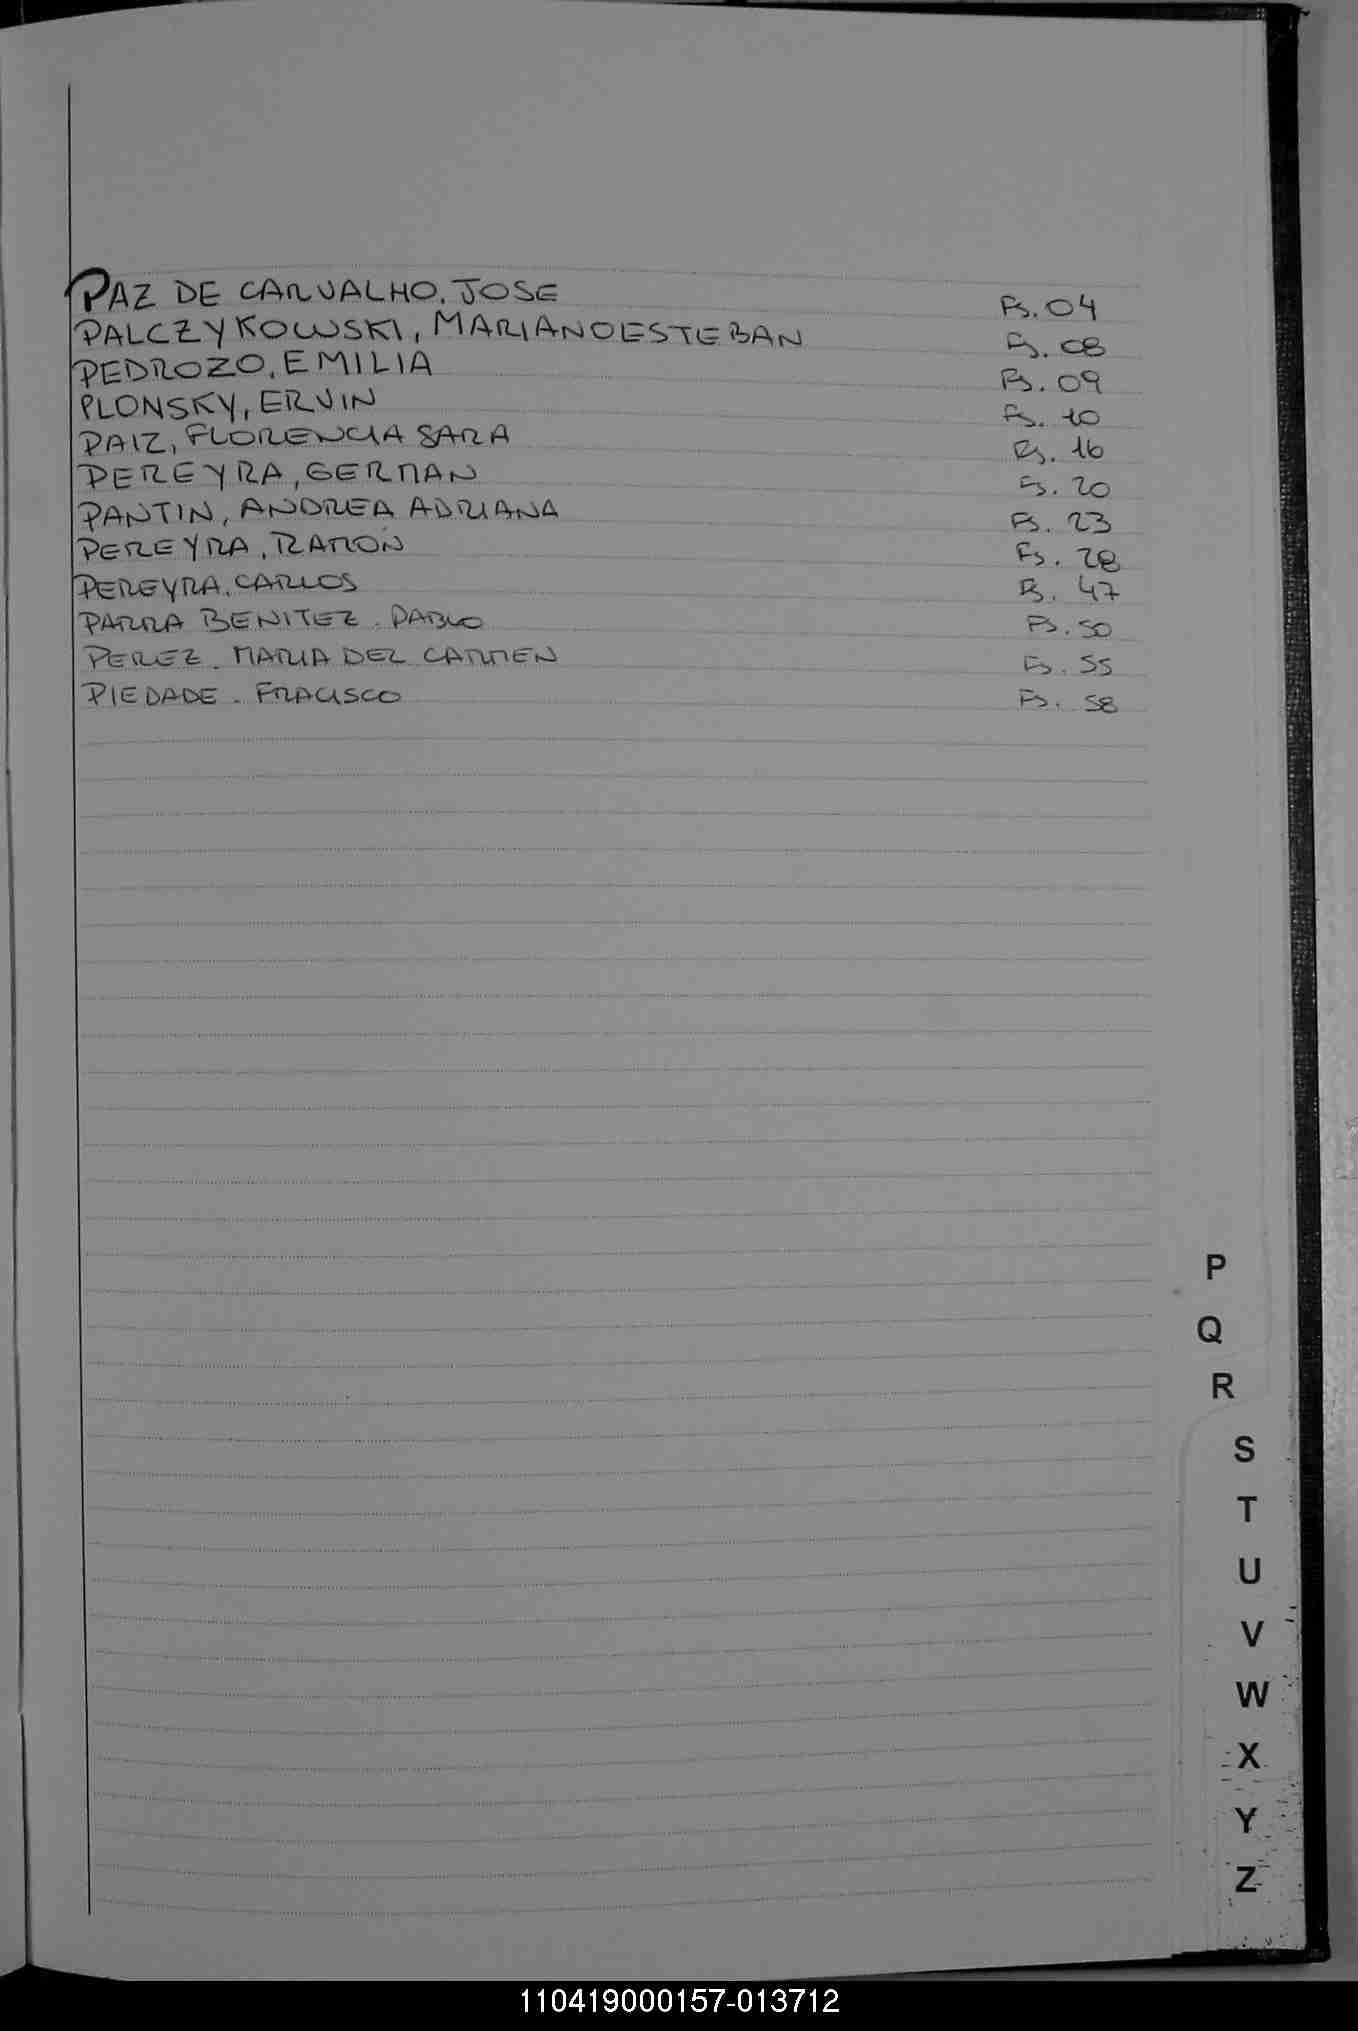 PAZ DE CARVALHO, JOSE Fs. 04
PALCZYKOWSKI, MARIANO ESTEBAN Fs. 08
PEDROZO, EMILIA Fs. 09
PLONSKY, ERVIN Fs. 10
PAIZ, FLORENCIA SARA Fs. 16
PEREYRA, GERMAN Fs. 20
PANTIN, ANDREA ADRIANA Fs. 23
PEREYRA, RAMON Fs. 28
PEREYRA, CARLOS Fs. 47
PARRA BENITEZ. PABLO Fs. 50
PEREZ. MARIA DEL CARMEN Fs. 55
PIEDADE. FRACISCO Fs. 58
P
Q
R
S
T
U
V
W
X
Y
Z
110419000157-013712